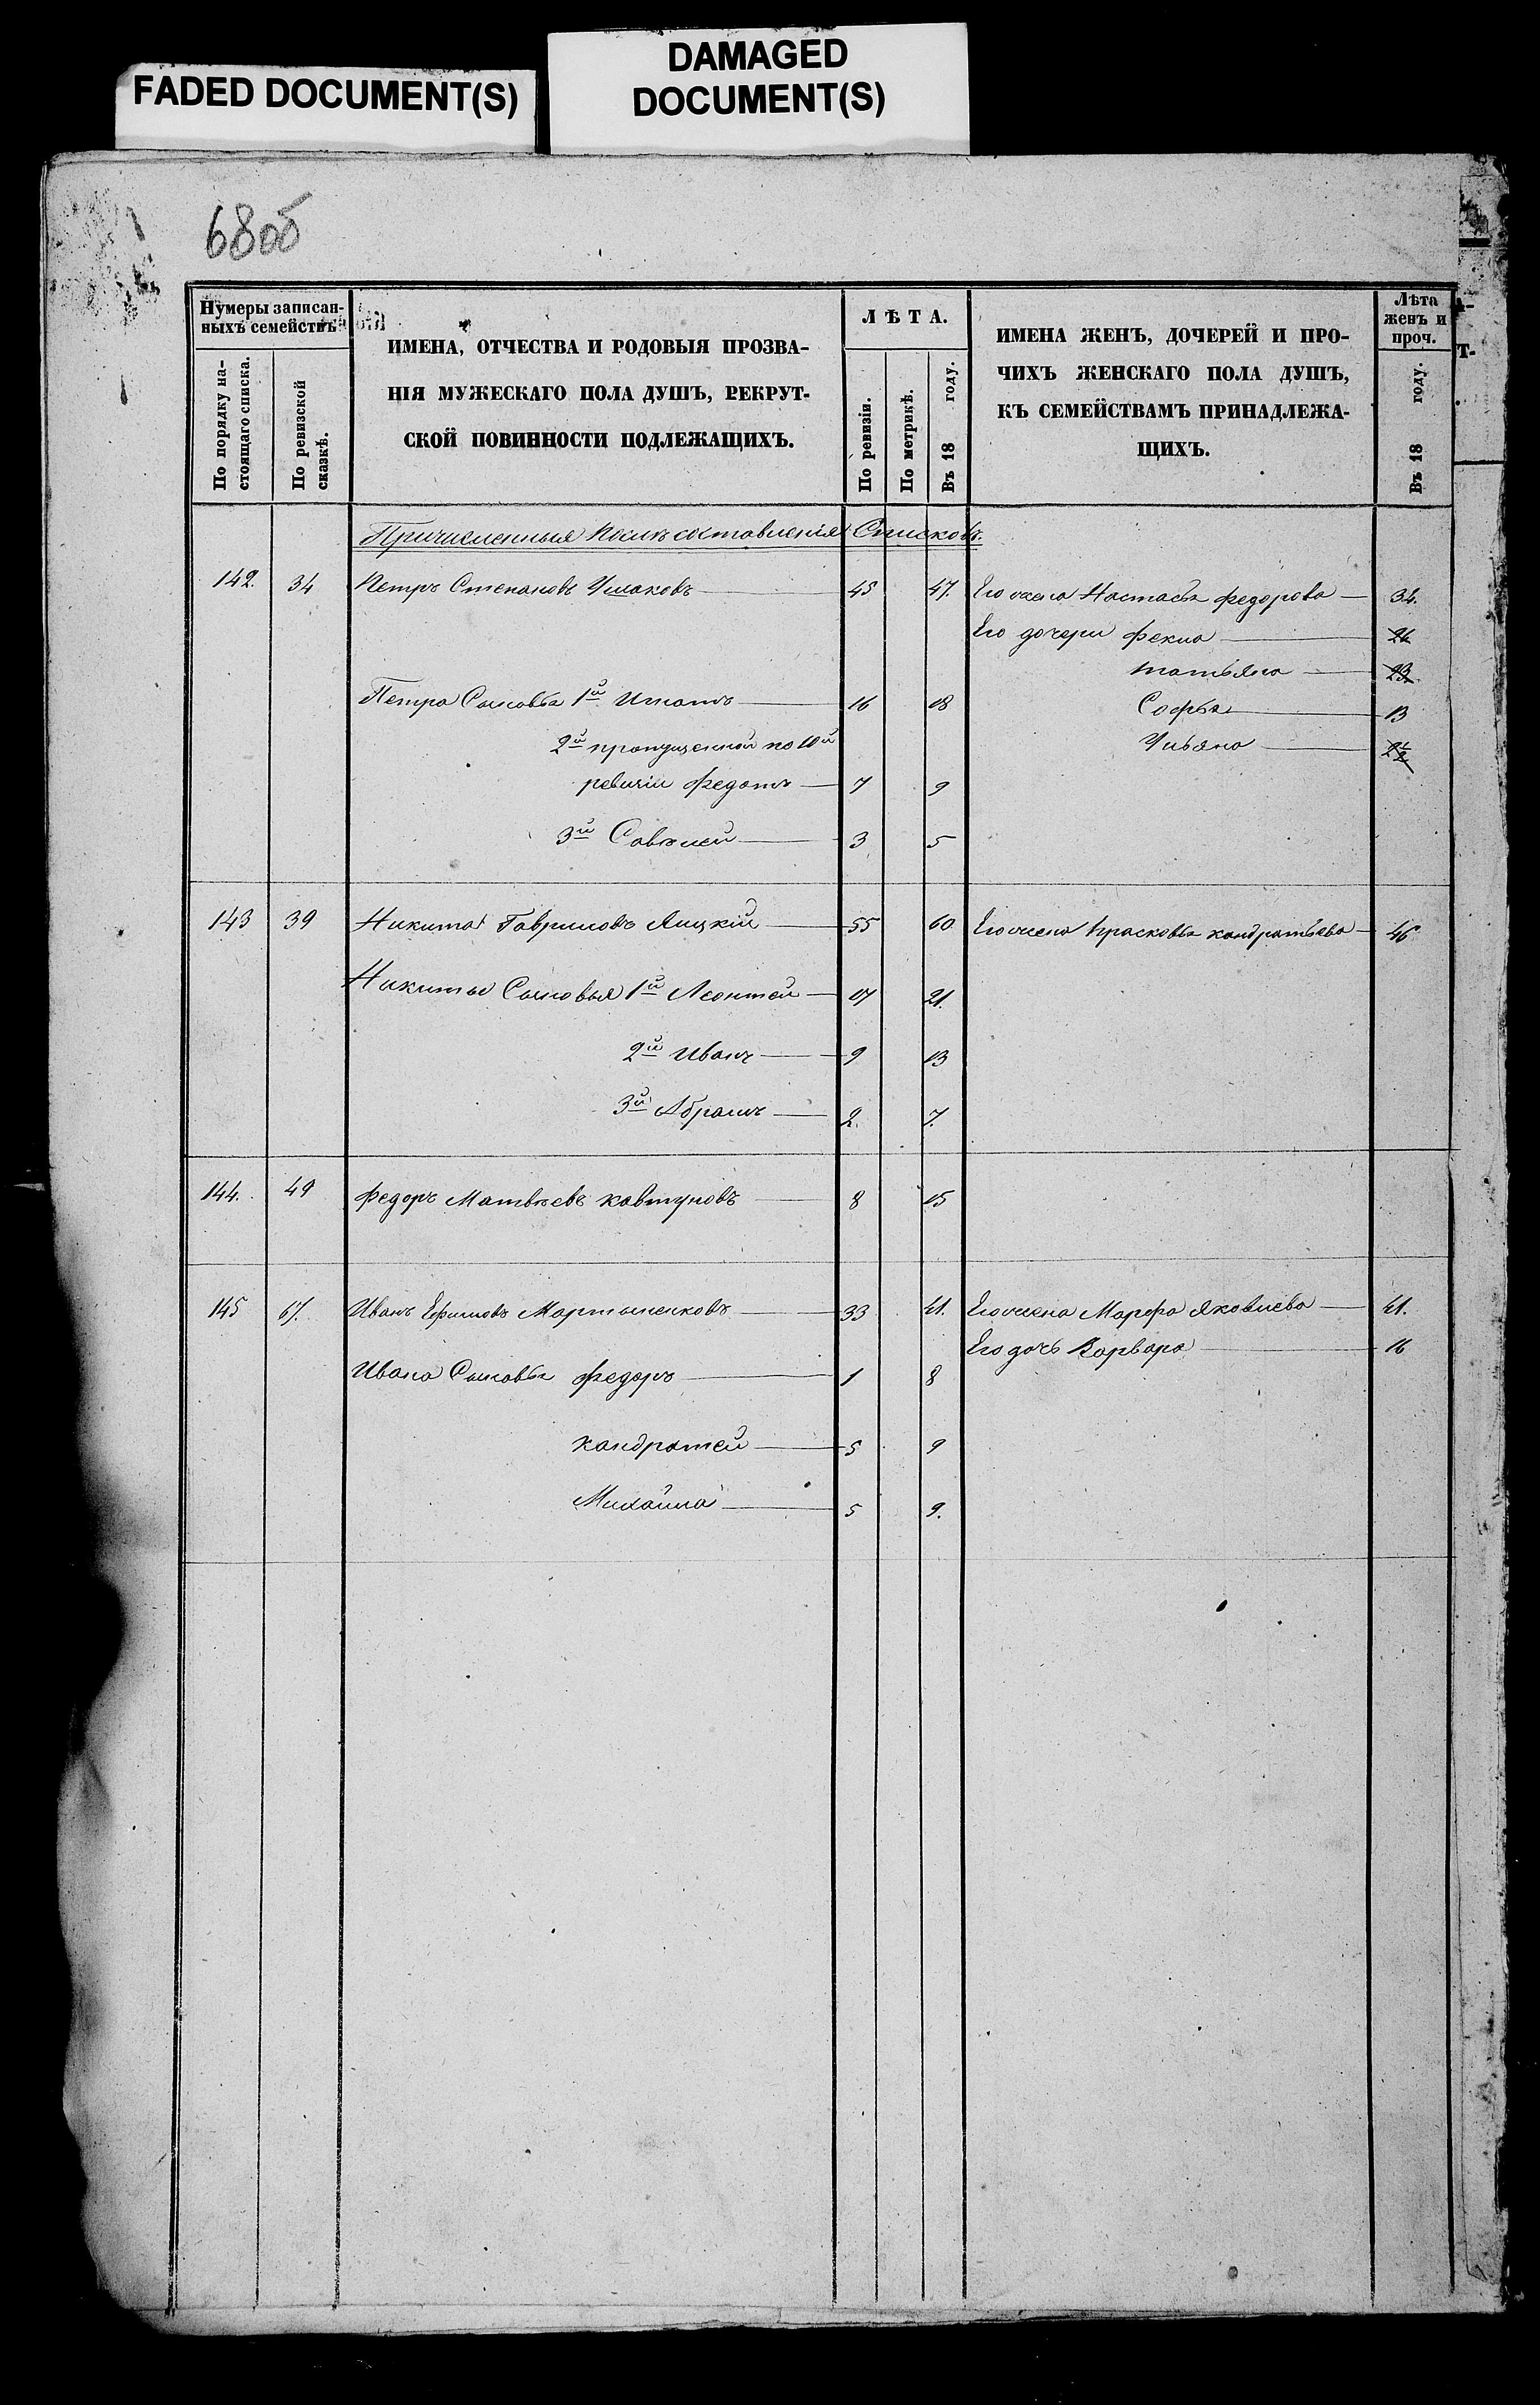 FADED DOCUMENT(S)
DAMAGED
DOCUMENT(S)
68об
Нумеры записан-
ныхъ семействъ
По порядку на-
стоящаго списка.
По ревизской
сказкѣ.
ИМЕНА, ОТЧЕСТВА И РОДОВЫЯ ПРОЗВА-
НІЯ МУЖЕСКАГО ПОЛА ДУШЪ, РЕКРУТ-
СКОЙ ПОВИННОСТИ ПОДЛЕЖАЩИХЪ.
ЛѢТА.
По ревизіи.
По метрикѣ.
Въ 18 году.
ИМЕНА ЖЕНЪ, ДОЧЕРЕЙ И ПРО-
ЧИХЪ ЖЕНСКАГО ПОЛА ДУШЪ,
КЪ СЕМЕЙСТВАМЪ ПРИНАДЛЕЖА-
ЩИХЪ.
Лѣта
женъ и
проч.
Въ 18 году.
Причисленныя послѣ составления Списковъ.
142. 34 Петръ Степановъ Ушаковъ 45 47. Его жена Настасья Федорова 34.
Его дочери Фекла 26
татьяна 23
Петра Сыновья 1й Игнатъ 16 18 Софья 13
2й пропущенной по 10й Ульяна
ревизіи Федотъ 7 9
3й Савѣлей 3 5
143 39 Никита Гавриловъ Яицкій 55 60. Его жена Прасковья кондратьева 46
Никиты Сыновья 1й Леонтей 17 21.
2й Иванъ 9 13
3й Абрамъ 2. 7.
144. 49 Федоръ Матвѣевъ Ковтуновъ 8 15
145 67. Иванъ Ефимовъ Мартыненковъ 33 41. Его жена Марфа Яковлева 41.
Его дочь Варвара 16
Ивана Сыновья Федоръ 1 8
Кандратей 5 9
Михайла 5 9.